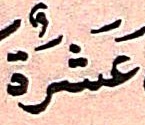 عَشَرَةُ